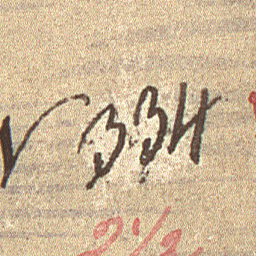 N 334
2 1/2